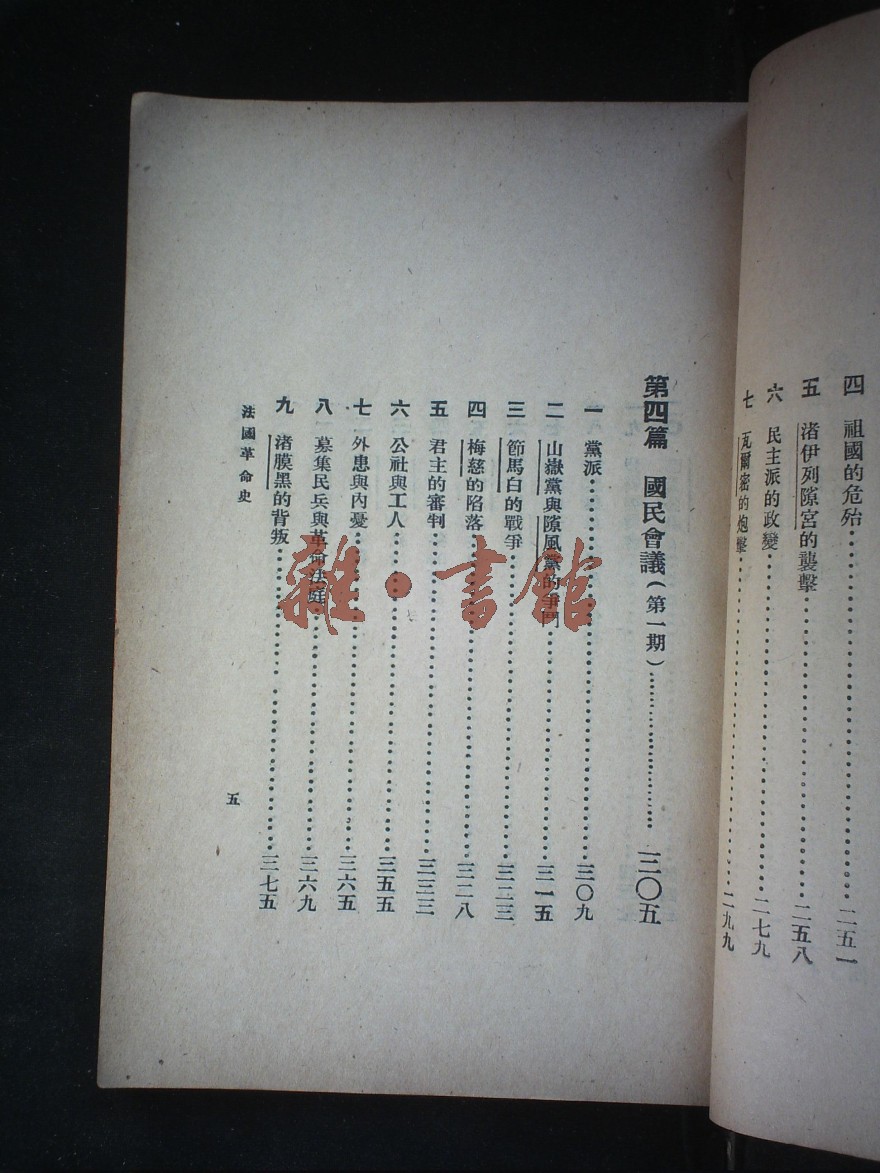 四　祖國的危殆……二五一
五　渚伊列隙宮的襲擊……二五八
六　民主派的政變……二七九
七　瓦爾密的炮擊……二九九
第四篇　國民會議（第一期）……三〇五
一　黨派……三〇九
二　山嶽黨與隙風黨的爭……三一五
三　節馬白的戰爭……三二三
四　梅慈的陷落……三二八
五　君主的審判……三三三
六　公社與工人……三五五
七　外患與內憂……三六五
八　募集民兵與革命法庭……三六九
九　渚膜黑的背叛……三七五
法國革命史
五
雜·書館